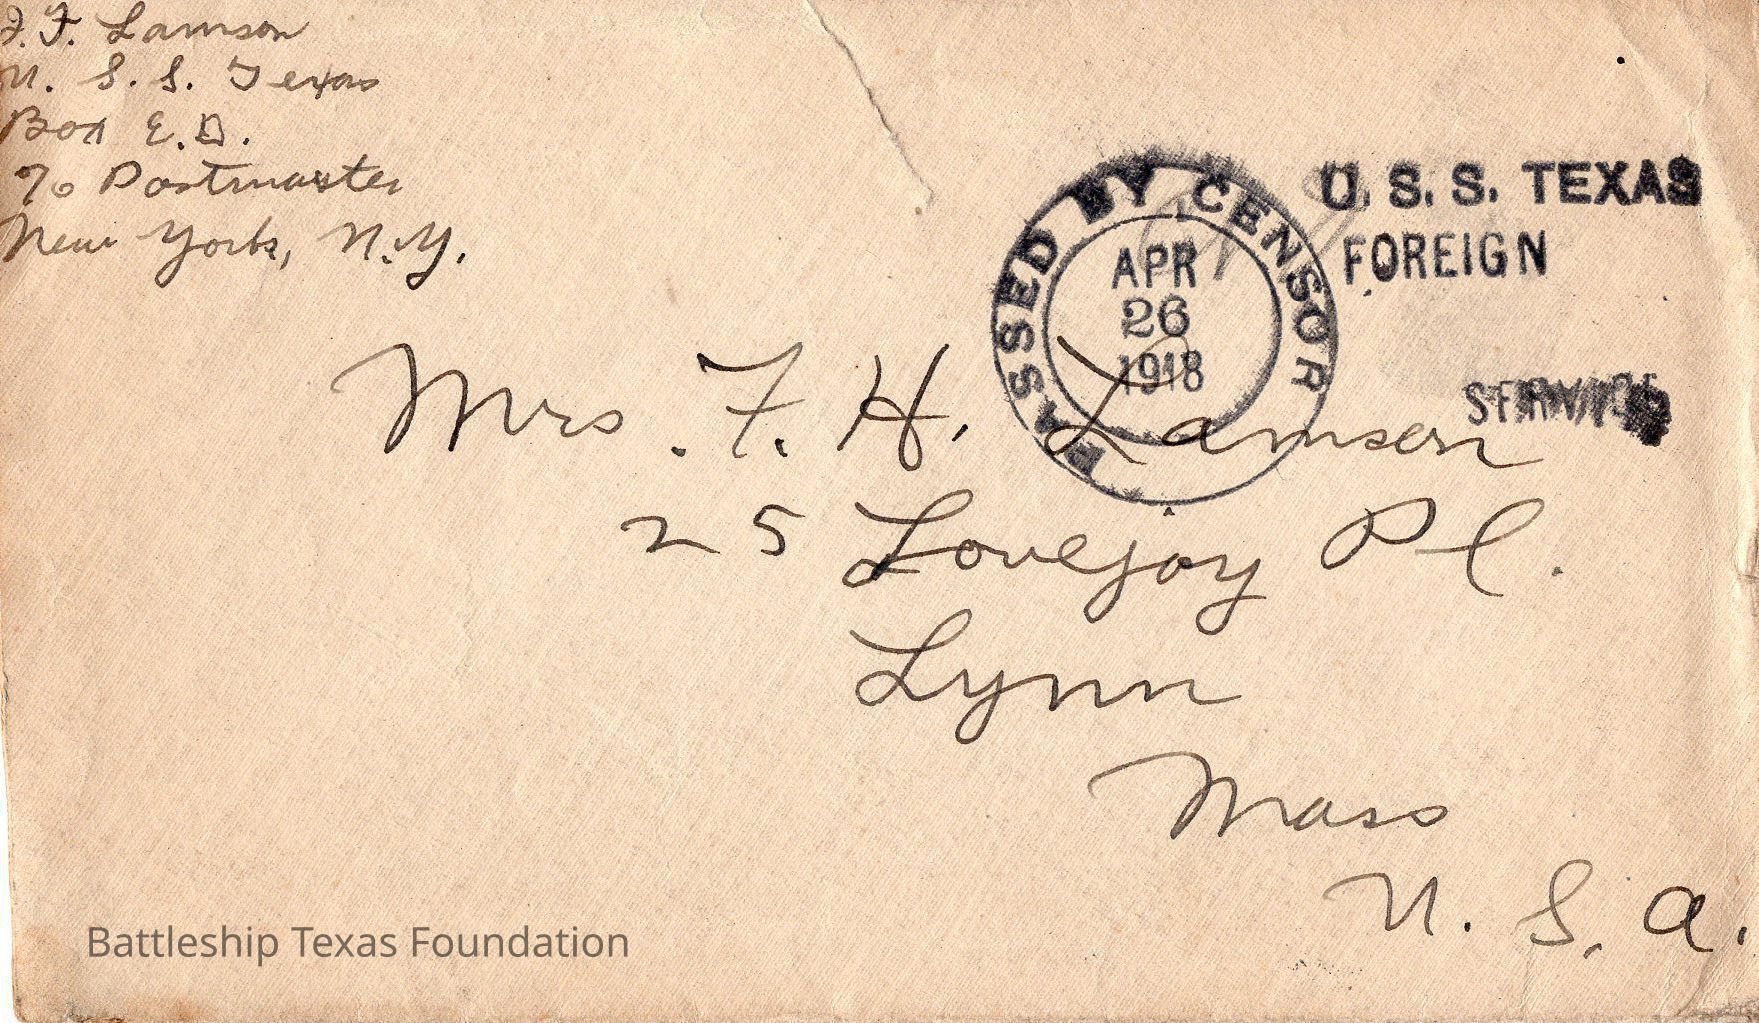 F. F. Lamson
U. S. S. Texas
Box E.D.
℅ Postmaster
New York, N.Y.
PASSED BY CENSOR
APR
26
1918
U. S. S. TEXAS
FOREIGN
SERVICE
Mrs. F. H. Lamson
25 Lovejoy Pl.
Lynn
Mass
U. S. A.
Battleship Texas Foundation